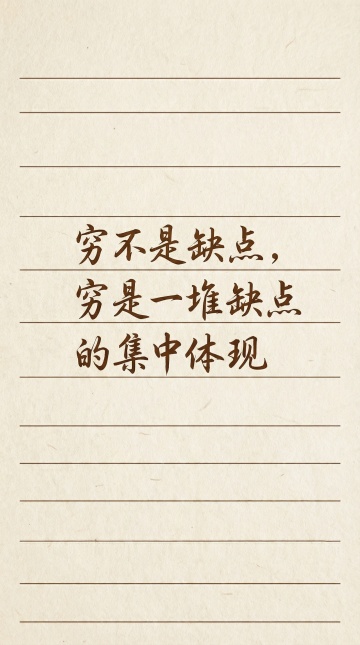 穷不是缺点，
穷是一堆缺点
的集中体现